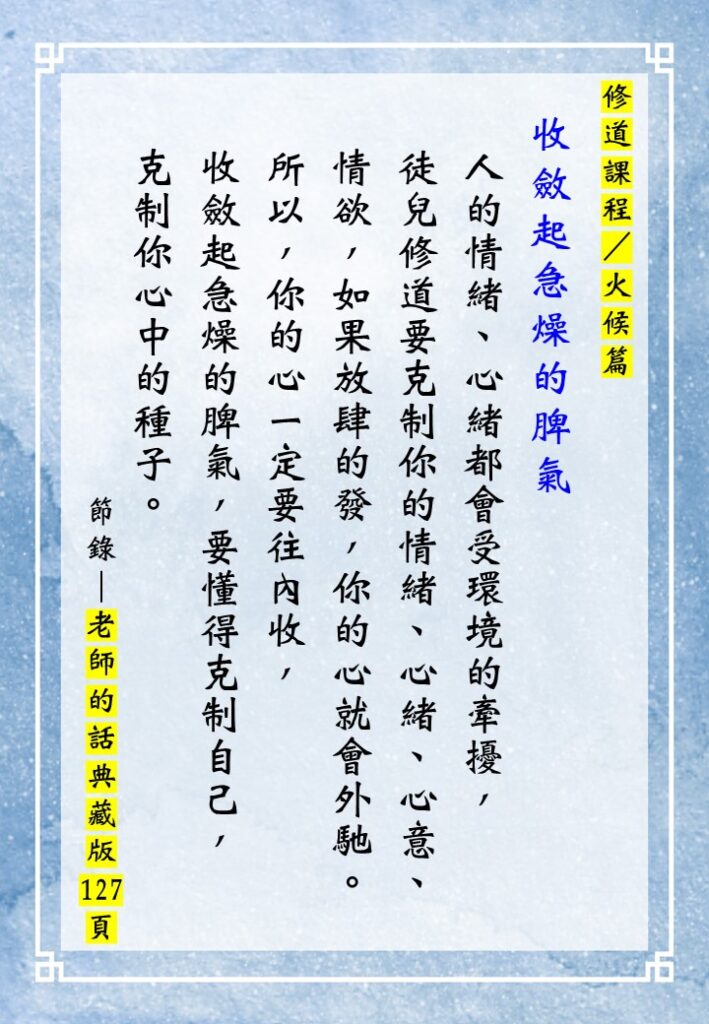 修道課程／火候篇
收斂起急燥的脾氣
人的情緒、心緒都會受環境的牽擾，
徒兒修道要克制你的情緒、心緒、心意、
情欲，如果放肆的發，你的心就會外馳。
所以，你的心一定要往內收，
收斂起急燥的脾氣，要懂得克制自己，
克制你心中的種子。
節錄—老師的話典藏版127頁